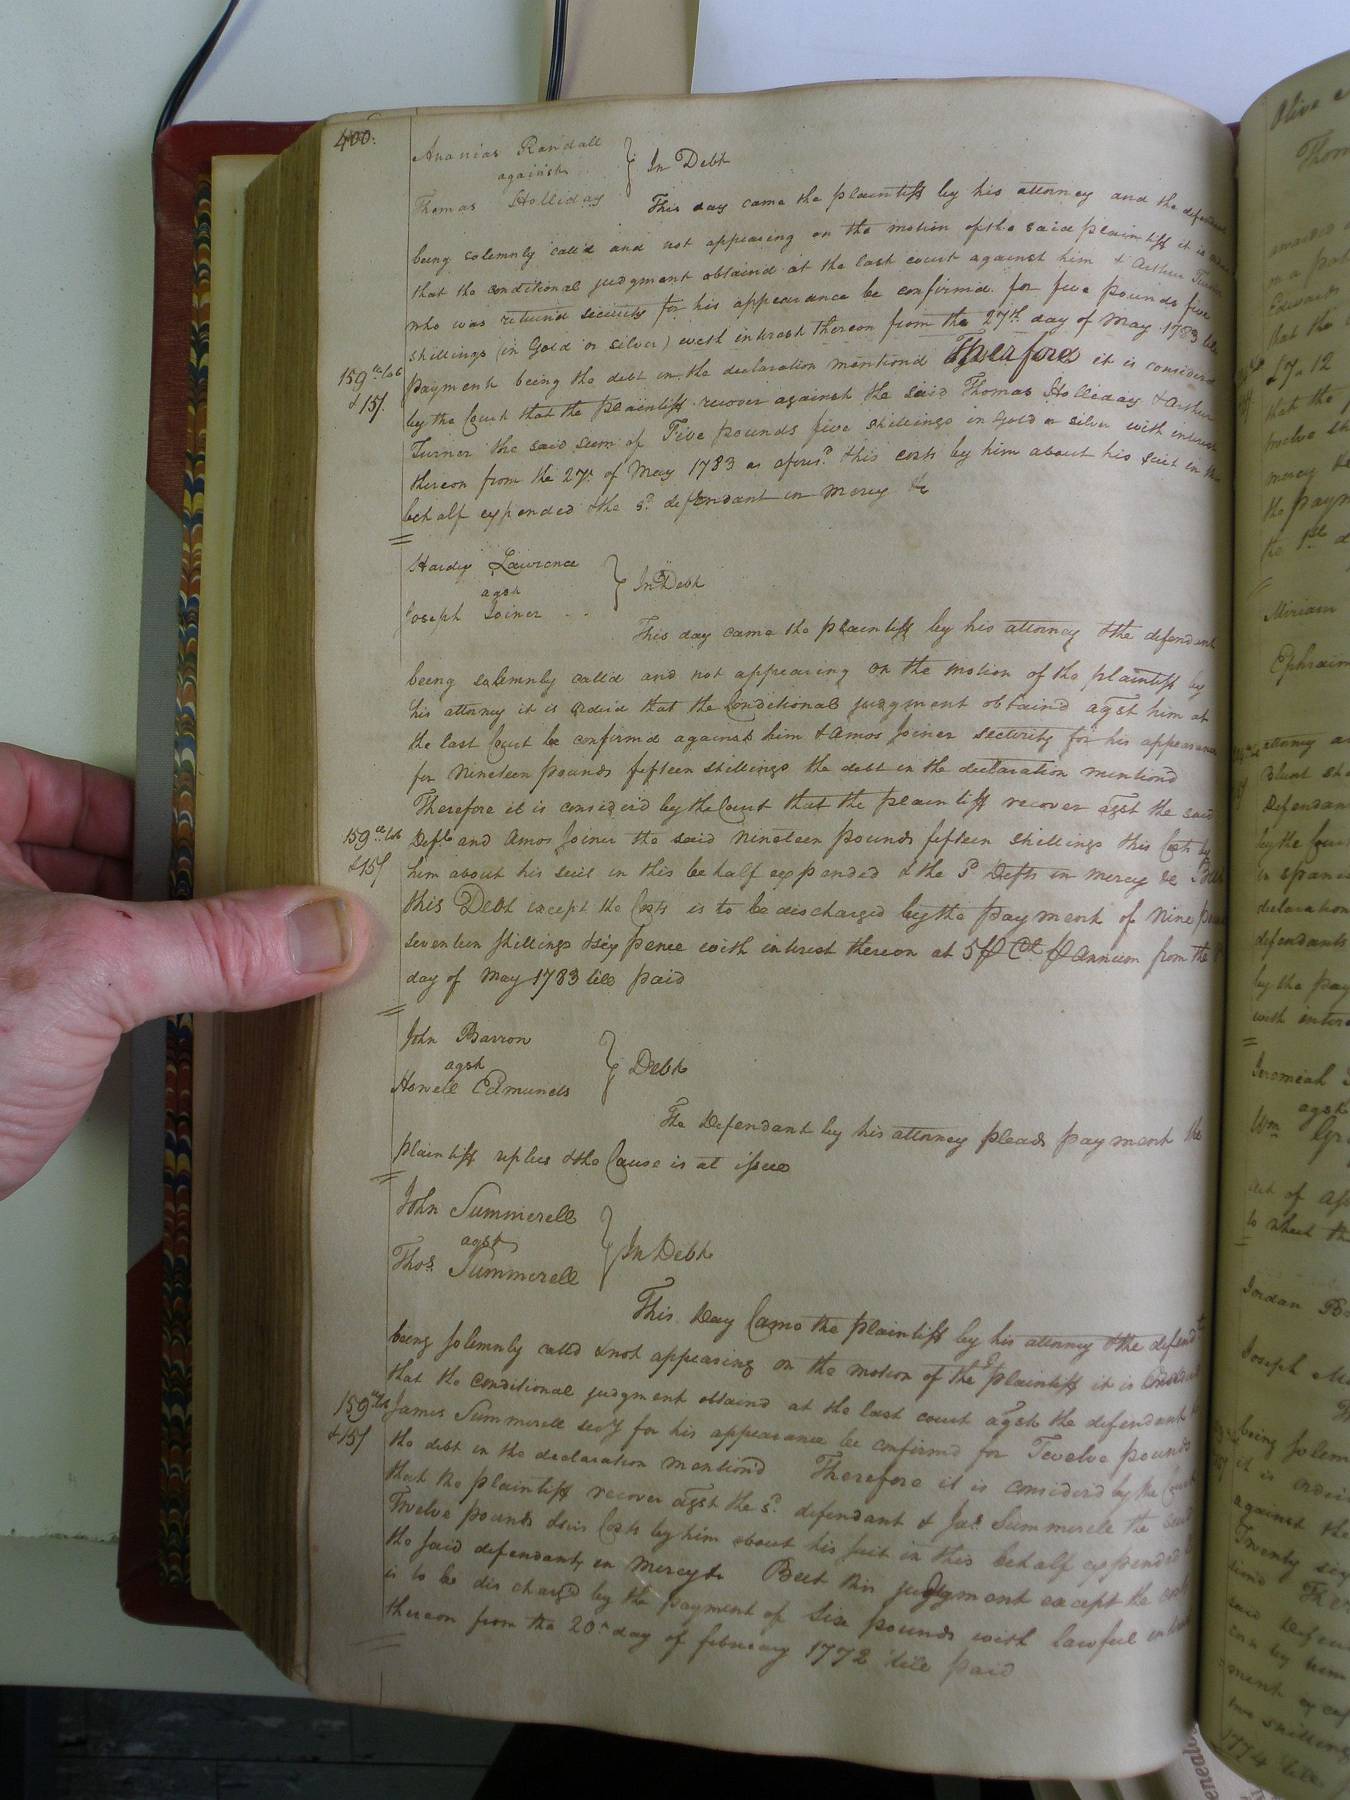 400.
Ananias Randall
against
Thomas Holliday
In Debt
This day came the plaintiff by his attorney and the defendant
being solemnly calld and not appearing on the motion of the said plaintiff it is
that the conditional judgment obtaind at the last court against him & Arthur Turner
who was returnd security for his appearance be confirmd for five pounds five
shillings (in Gold or silver) with intrest thereon from the 27th day of May 1783 till
payment being the debt in the declaration mentiond Therefore it is considerd
159
& 15/
by the Court that the plaintiff recover against the said Thomas Holliday & Arthur
Turner the said sum of Five pounds five shillings in Gold or silver with interest
thereon from the 27th of May 1783 as aforesd. & his costs by him about his suit in this
behalf expended & the sd. defendant in mercy &c
Hardy Lawrence
agst
Joseph Joiner
In Debt
This day came the plaintiff by his attorney & the defendant
being solemnly calld and not appearing on the motion of the plaintiff by
his attorney it is orderd that the Conditional judgment obtaind agst him at
the last Court be confirmd against him & Amos Joiner security for his appearance
for Nineteen pounds fifteen shillings the debt in the declaration mentiond
Therefore it is considerd by the Court that the plaintiff recover agst the said
159
& 15/
Deft and Amos Joiner the said nineteen pounds fifteen shillings & his Costs by
him about his suit in this behalf expended & the sd. Defts in mercy &c But
this Debt except the Costs is to be discharged by the payment of Nine pounds
seventeen shillings & six pence with interest thereon at 5 P Ct P annum from the
day of May 1783 till paid
John Barron
agst
Howell Edmunds
Debt
The Defendant by his attorney pleads payment the
plaintiff replies & the Cause is at issue
John Summerell
agst
Thos. Summerell
In Debt
This Day Came the plaintiff by his attorney & the defendt
being solemnly calld & not appearing on the motion of the plaintiff it is Considerd
that the conditional judgment obtaind at the last court agst the defendant &
159
& 15/
James Summerell secy for his appearance be confirmd for Twelve pounds
the debt in the declaration mentiond Therefore it is considerd by the Court
that the plaintiff recover agst the sd. defendant & Jas. Summerell the said
Twelve pounds & his Costs by him about his suit in this behalf expended &
the said defendants in mercy &c But this judgment except the costs
is to be discharged by the payment of Six pounds with lawful interest
thereon from the 20th day of february 1772 till paid
Miriam
Ephraim
Jeremiah
agst
Wm
Jordan
Joseph